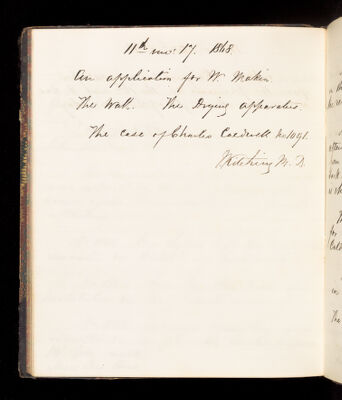 11th mo: 17. 1868
An application for W. Makin.
The Wall. The Drying apparatus.
The case of Charles Caldwell No 1091.
J Kitching M.D.